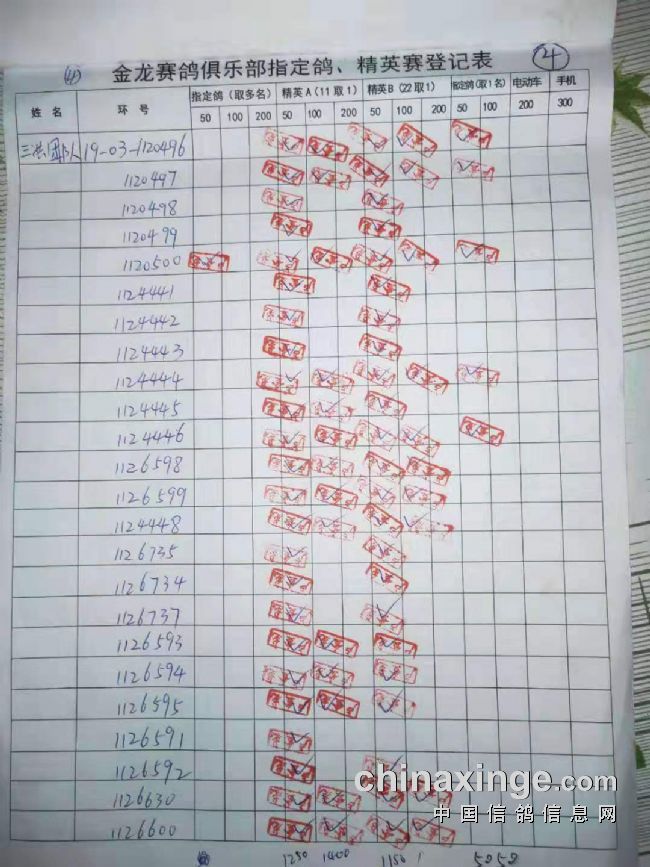 (4)
金龙赛鸽俱乐部指定鸽、精英赛登记表
④
姓 名 环 号 指定鸽（取多名） 精英A（11取1） 精英B（22取1） 指定鸽（取1名） 电动车 手机
50 100 200 50 100 200 50 100 200 50 100 200 300
19-03-1120496
1120497
1120498
1120499
1120500
1124441
1124442
1124443
1124444
1124445
1124446
1126598
1126599
1124448
1126735
1126734
1126737
1126593
1126594
1126595
1126591
1126592
1126630
1126600
1250 1400 1150
chinaxinge.com
中国信鸽信息网